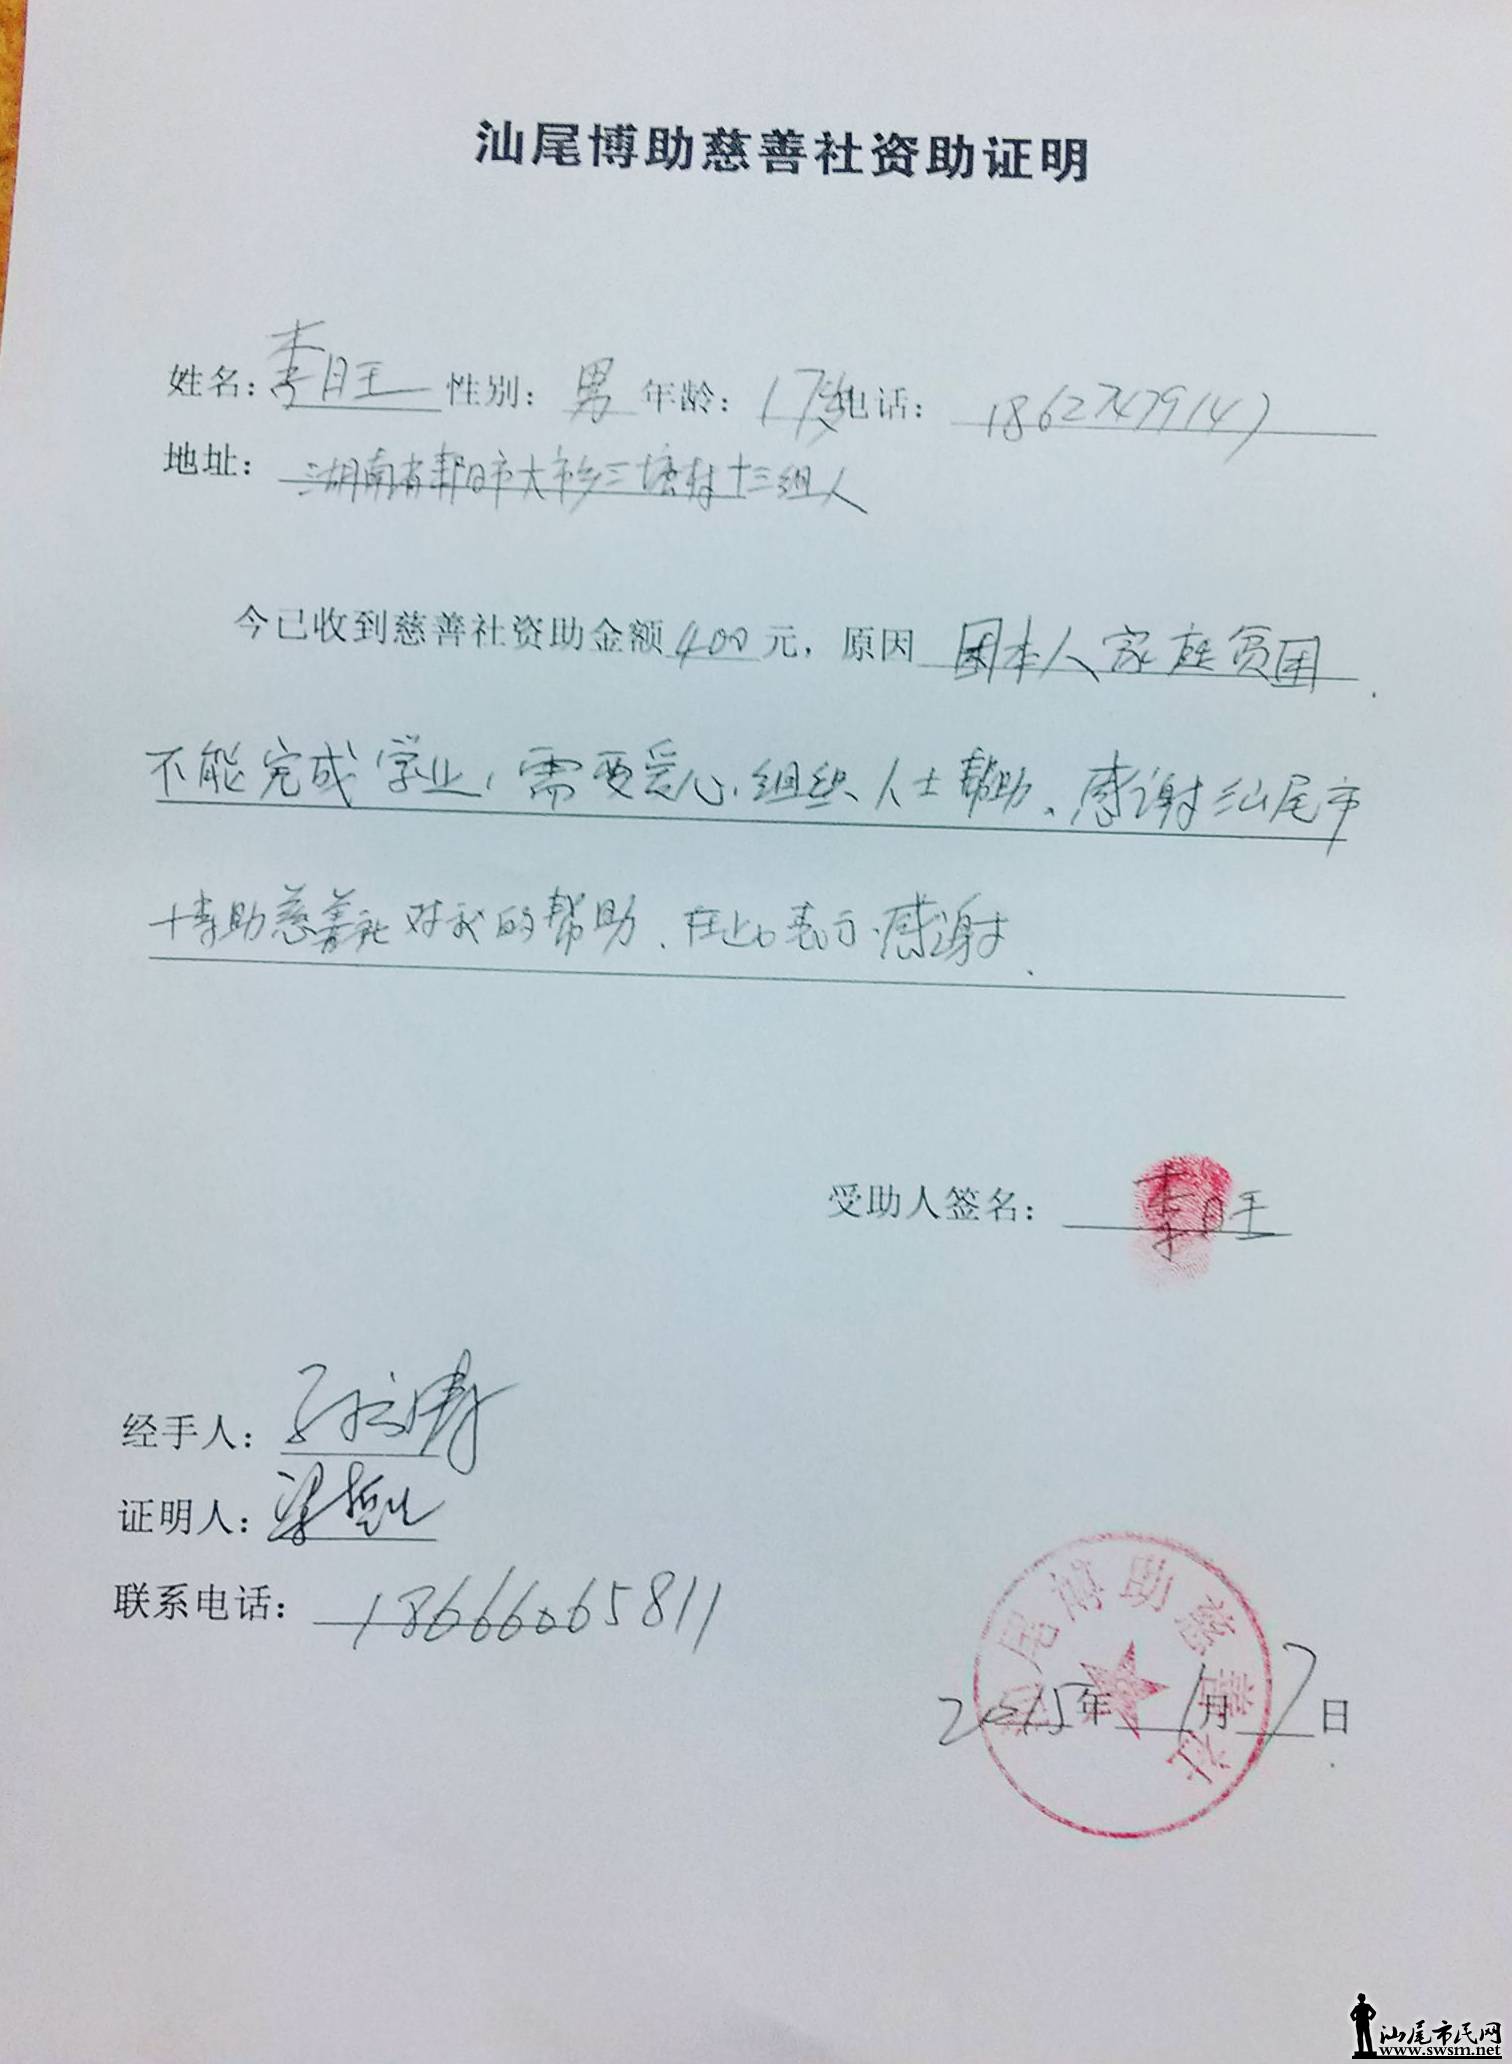 汕尾博助慈善社资助证明
姓名：李日王 性别：男 年龄：17岁 电话：18627479147
地址：湖南省耒阳市大市乡三塘村十三组人
今已收到慈善社资助金额400元，原因 因本人家庭贫困
不能完成学业，需要爱心组织人士帮助、感谢汕尾市
博助慈善社对我的帮助、在此表示感谢.
受助人签名：李日王
经手人：
证明人：梁
联系电话：18666065811
汕尾博助慈善社
2015年1月7日
汕尾市民网
www.swsm.net